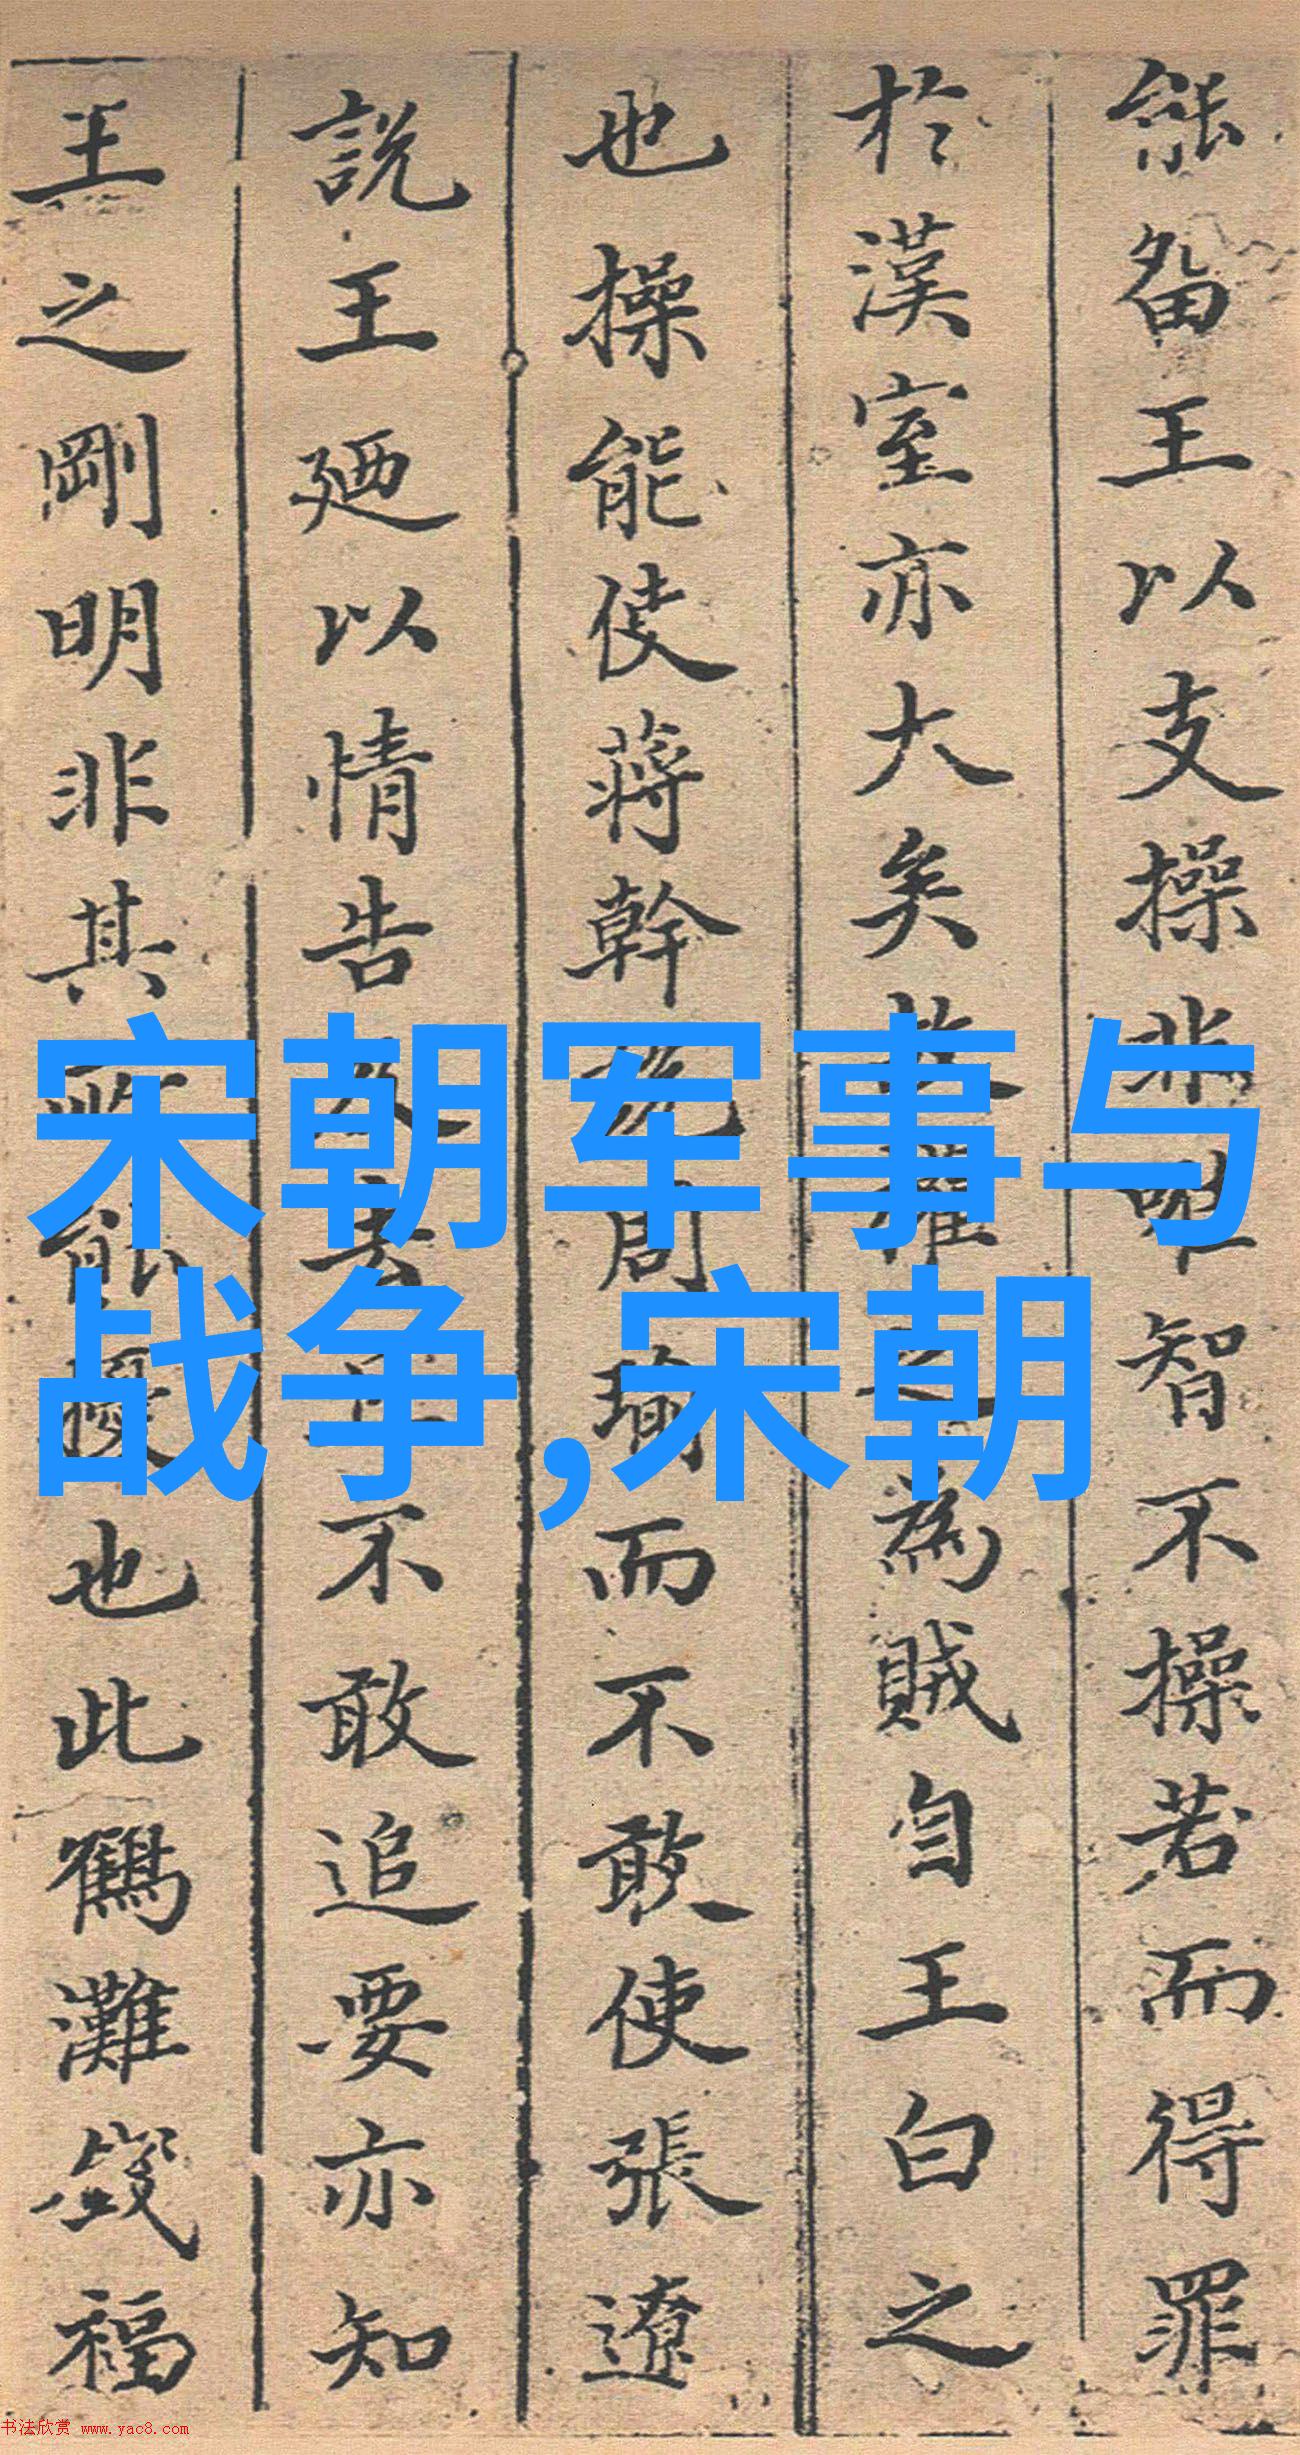 能留王以支操非唯智不操若而得罪
於漢室亦大矣故權之為賊自王白之
也操能使蔣幹說周瑜而不敢使張遼
說王廼以情告及去而不敢追要亦知
王之剛明非其所能擾也此鶴灘福
宋朝军事与
战争,宋朝
书法欣赏 www.yac8.com